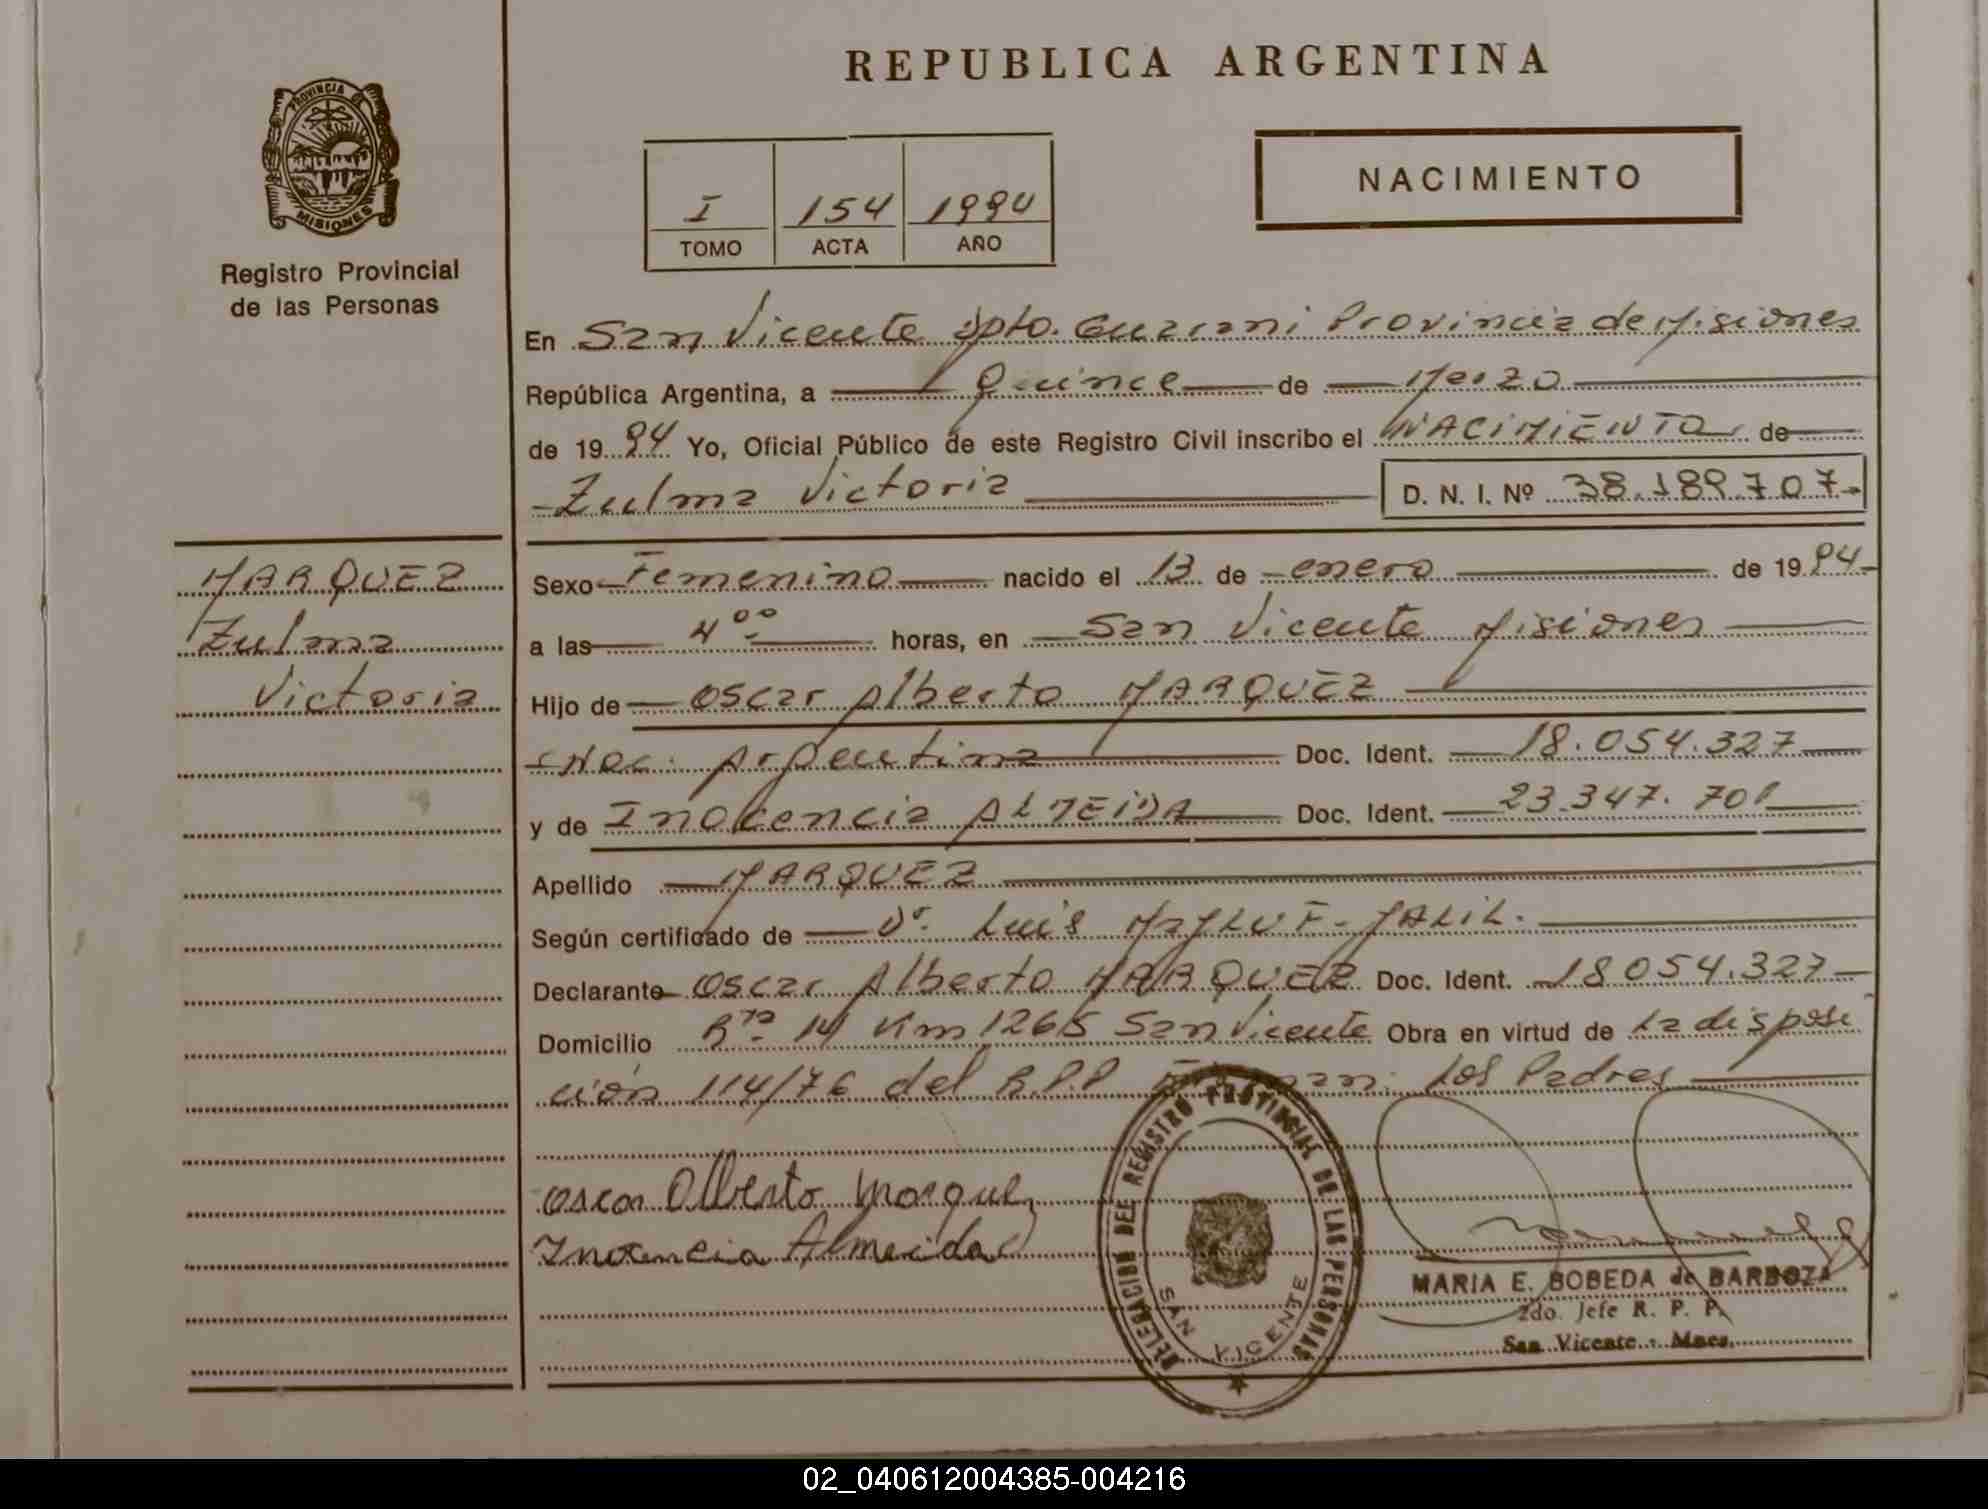 REPUBLICA ARGENTINA
PROVINCIA DE
MISIONES
Registro Provincial
de las Personas
I 154 1994
TOMO ACTA AÑO
NACIMIENTO
En San Vicente Dpto. Guarani Provincia de Misiones
República Argentina, a Quince de Marzo
de 1994 Yo, Oficial Público de este Registro Civil inscribo el NACIMIENTO de
Zulma Victoria D. N. I. Nº 38.189.707
MARQUEZ
Zulma
Victoria
Sexo Femenino nacido el 13 de enero de 1994
a las 4°° horas, en San Vicente Misiones
Hijo de Oscar Alberto MARQUEZ
Nac. Argentina Doc. Ident. 18.054.327
y de Inocencia ALMEIDA Doc. Ident. 23.347.701
Apellido MARQUEZ
Según certificado de Dr. Luis MAJLUF - JALIL.
Declarante Oscar Alberto MARQUEZ Doc. Ident. 18054.327
Domicilio Rta 14 Km 1265 San Vicente Obra en virtud de la disposi
ción 114/76 del R.P.P Los Padres
Oscar Alberto Marquez
Inocencia Almeida
DELEGACION DEL REGISTRO PROVINCIAL DE LAS PERSONAS
SAN VICENTE
MARIA E. BOBEDA de BARBOZA
2do. Jefe R. P. P.
San Vicente - Mnes.
02_040612004385-004216